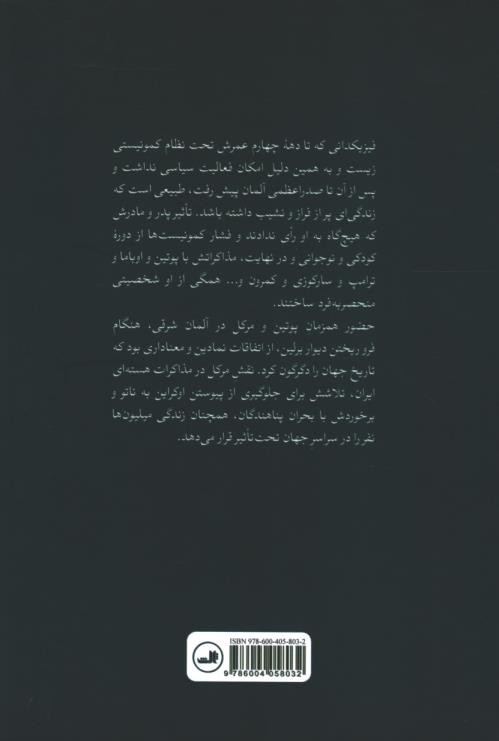 فیزیکدانی که تا دههٔ چهارم عمرش تحت نظام کمونیستی
زیست و به همین دلیل امکان فعالیت سیاسی نداشت و
پس از آن تا صدراعظمی آلمان پیش رفت، طبیعی است که
زندگی‌ای پر از فراز و نشیب داشته باشد. تأثیر پدر و مادرش
که هیچ‌گاه به او رأی ندادند و فشار کمونیست‌ها از دورهٔ
کودکی و نوجوانی و در نهایت، مذاکراتش با پوتین و اوباما و
ترامپ و سارکوزی و کمرون و... همگی از او شخصیتی
منحصربه‌فرد ساختند.
حضور همزمان پوتین و مرکل در آلمان شرقی، هنگام
فرو ریختن دیوار برلین، از اتفاقات نمادین و معناداری بود که
تاریخ جهان را دگرگون کرد. نقش مرکل در مذاکرات هسته‌ای
ایران، تلاشش برای جلوگیری از پیوستن اوکراین به ناتو و
برخوردش با بحران پناهندگان، همچنان زندگی میلیون‌ها
نفر را در سراسرِ جهان تحت تأثیر قرار می‌دهد.
ISBN 978-600-405-803-2
ثالث
9 786004 058032